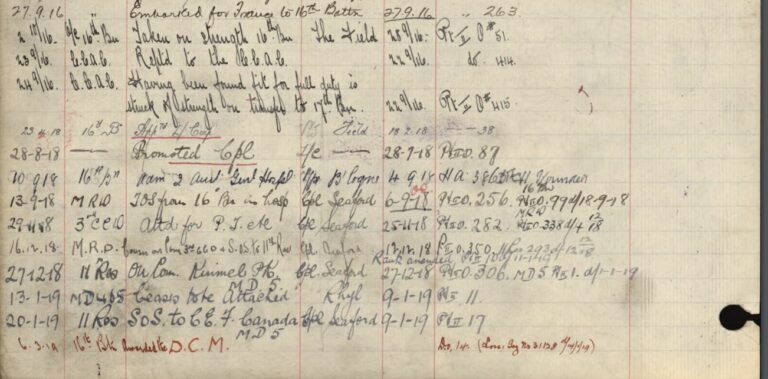 27.9.16 " Embarked for France to 16th Battn 27.9.16 " 263.
16th Bn Taken on strength 16th Bn The Field 28/9/16. Pt II O# 51.
23/9/16. C.C.A.C. Reptd to the C.C.A.C. 22/9/16. do. 414.
24/9/16. C.C.A.C. Having been found fit for full duty is
struck of strength on transfer to 17th Bn. 22/9/16. Pt II O# 415.
16th Bn Field 18.2.18 38
28-8-18 Promoted Cpl 28-7-18 Pt II O. 87
10-9-18 16th Bn Adm 2 Aust Genl Hospl 4 9 18 HA Wounded
13-9-18 MRD TOS from 16th Bn in hosp Cpl Seaford 6-9-18 Pt II O. 256. 16 Bn Pt II O. 99 d/18-9-18
29-11-18 3rd CCD Attd for P.T. etc Cpl Seaford 25-11-18 Pt II O. 282. MRD Pt II O 338
16.12.18 M.R.D. 12.12.18
27-12-18 11 Res On Com. Kinmel Pk. MD 5 Cpl Seaford 27-12-18 Pt II O. 306. MD 5 Pt II 1. d/1-1-19
13-1-19 Ceases to be Attached Rhyl 9-1-19 Pt II 11.
20-1-19 11 Res S.O.S. to C.E.F. Canada MD 5 Cpl Seaford 9-1-19 Pt II 17
6.3.19 16th Bn Awarded the D.C.M.